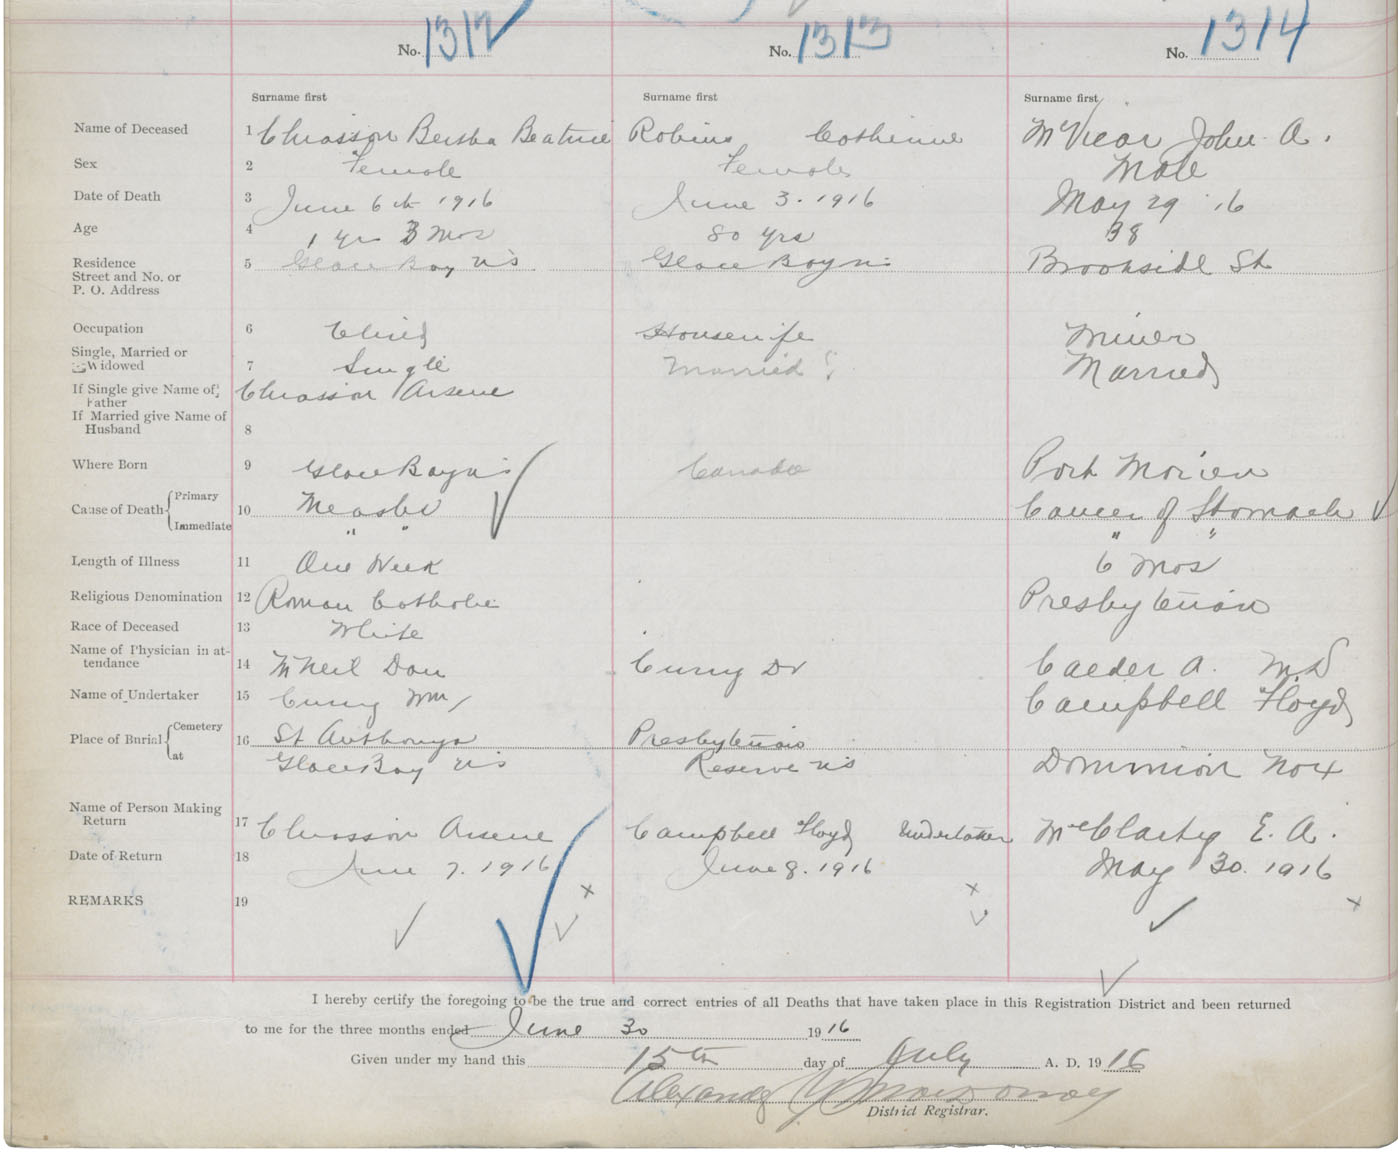 No. 1312 No. 1313 No. 1314
Surname first Surname first Surname first
Name of Deceased 1 Chiasson Bertha Beatrice Robins Catherine McVicar John A.
Sex 2 Female Female Male
Date of Death 3 June 6th 1916 June 3. 1916 May 29 '16
Age 4 1 yr 3 Mos 80 yrs 38
Residence
Street and No. or 5 Glace Bay N S Glace Bay N S Brookside St
P. O. Address
Occupation 6 Child Housewife Miner
Single, Married or
Widowed 7 Single Married ? Married
If Single give Name of Chiasson Arsene
Father
If Married give Name of
Husband 8
Where Born 9 Glace Bay N S Canada Port Morien
Cause of Death Primary 10 Measles Cancer of Stomach
Immediate " " " "
Length of Illness 11 One Week 6 Mos
Religious Denomination 12 Roman Catholic Presbyterian
Race of Deceased 13 White
Name of Physician in at-
tendance 14 McNeil Dan Curry Dr Calder A. M.D
Name of Undertaker 15 Curry Wm Campbell Floyd
Place of Burial Cemetery 16 St Anthonys Presbyterian
at Glace Bay N S Reserve N S Dominion No 4
Name of Person Making
Return 17 Chiasson Arsene Campbell Floyd Undertaker McClarty E. A.
Date of Return 18 June 7. 1916 June 8. 1916 May 30. 1916
REMARKS 19
I hereby certify the foregoing to be the true and correct entries of all Deaths that have taken place in this Registration District and been returned
to me for the three months ended June 30 1916
Given under my hand this 15th day of July A. D. 1916
Alexander
District Registrar.